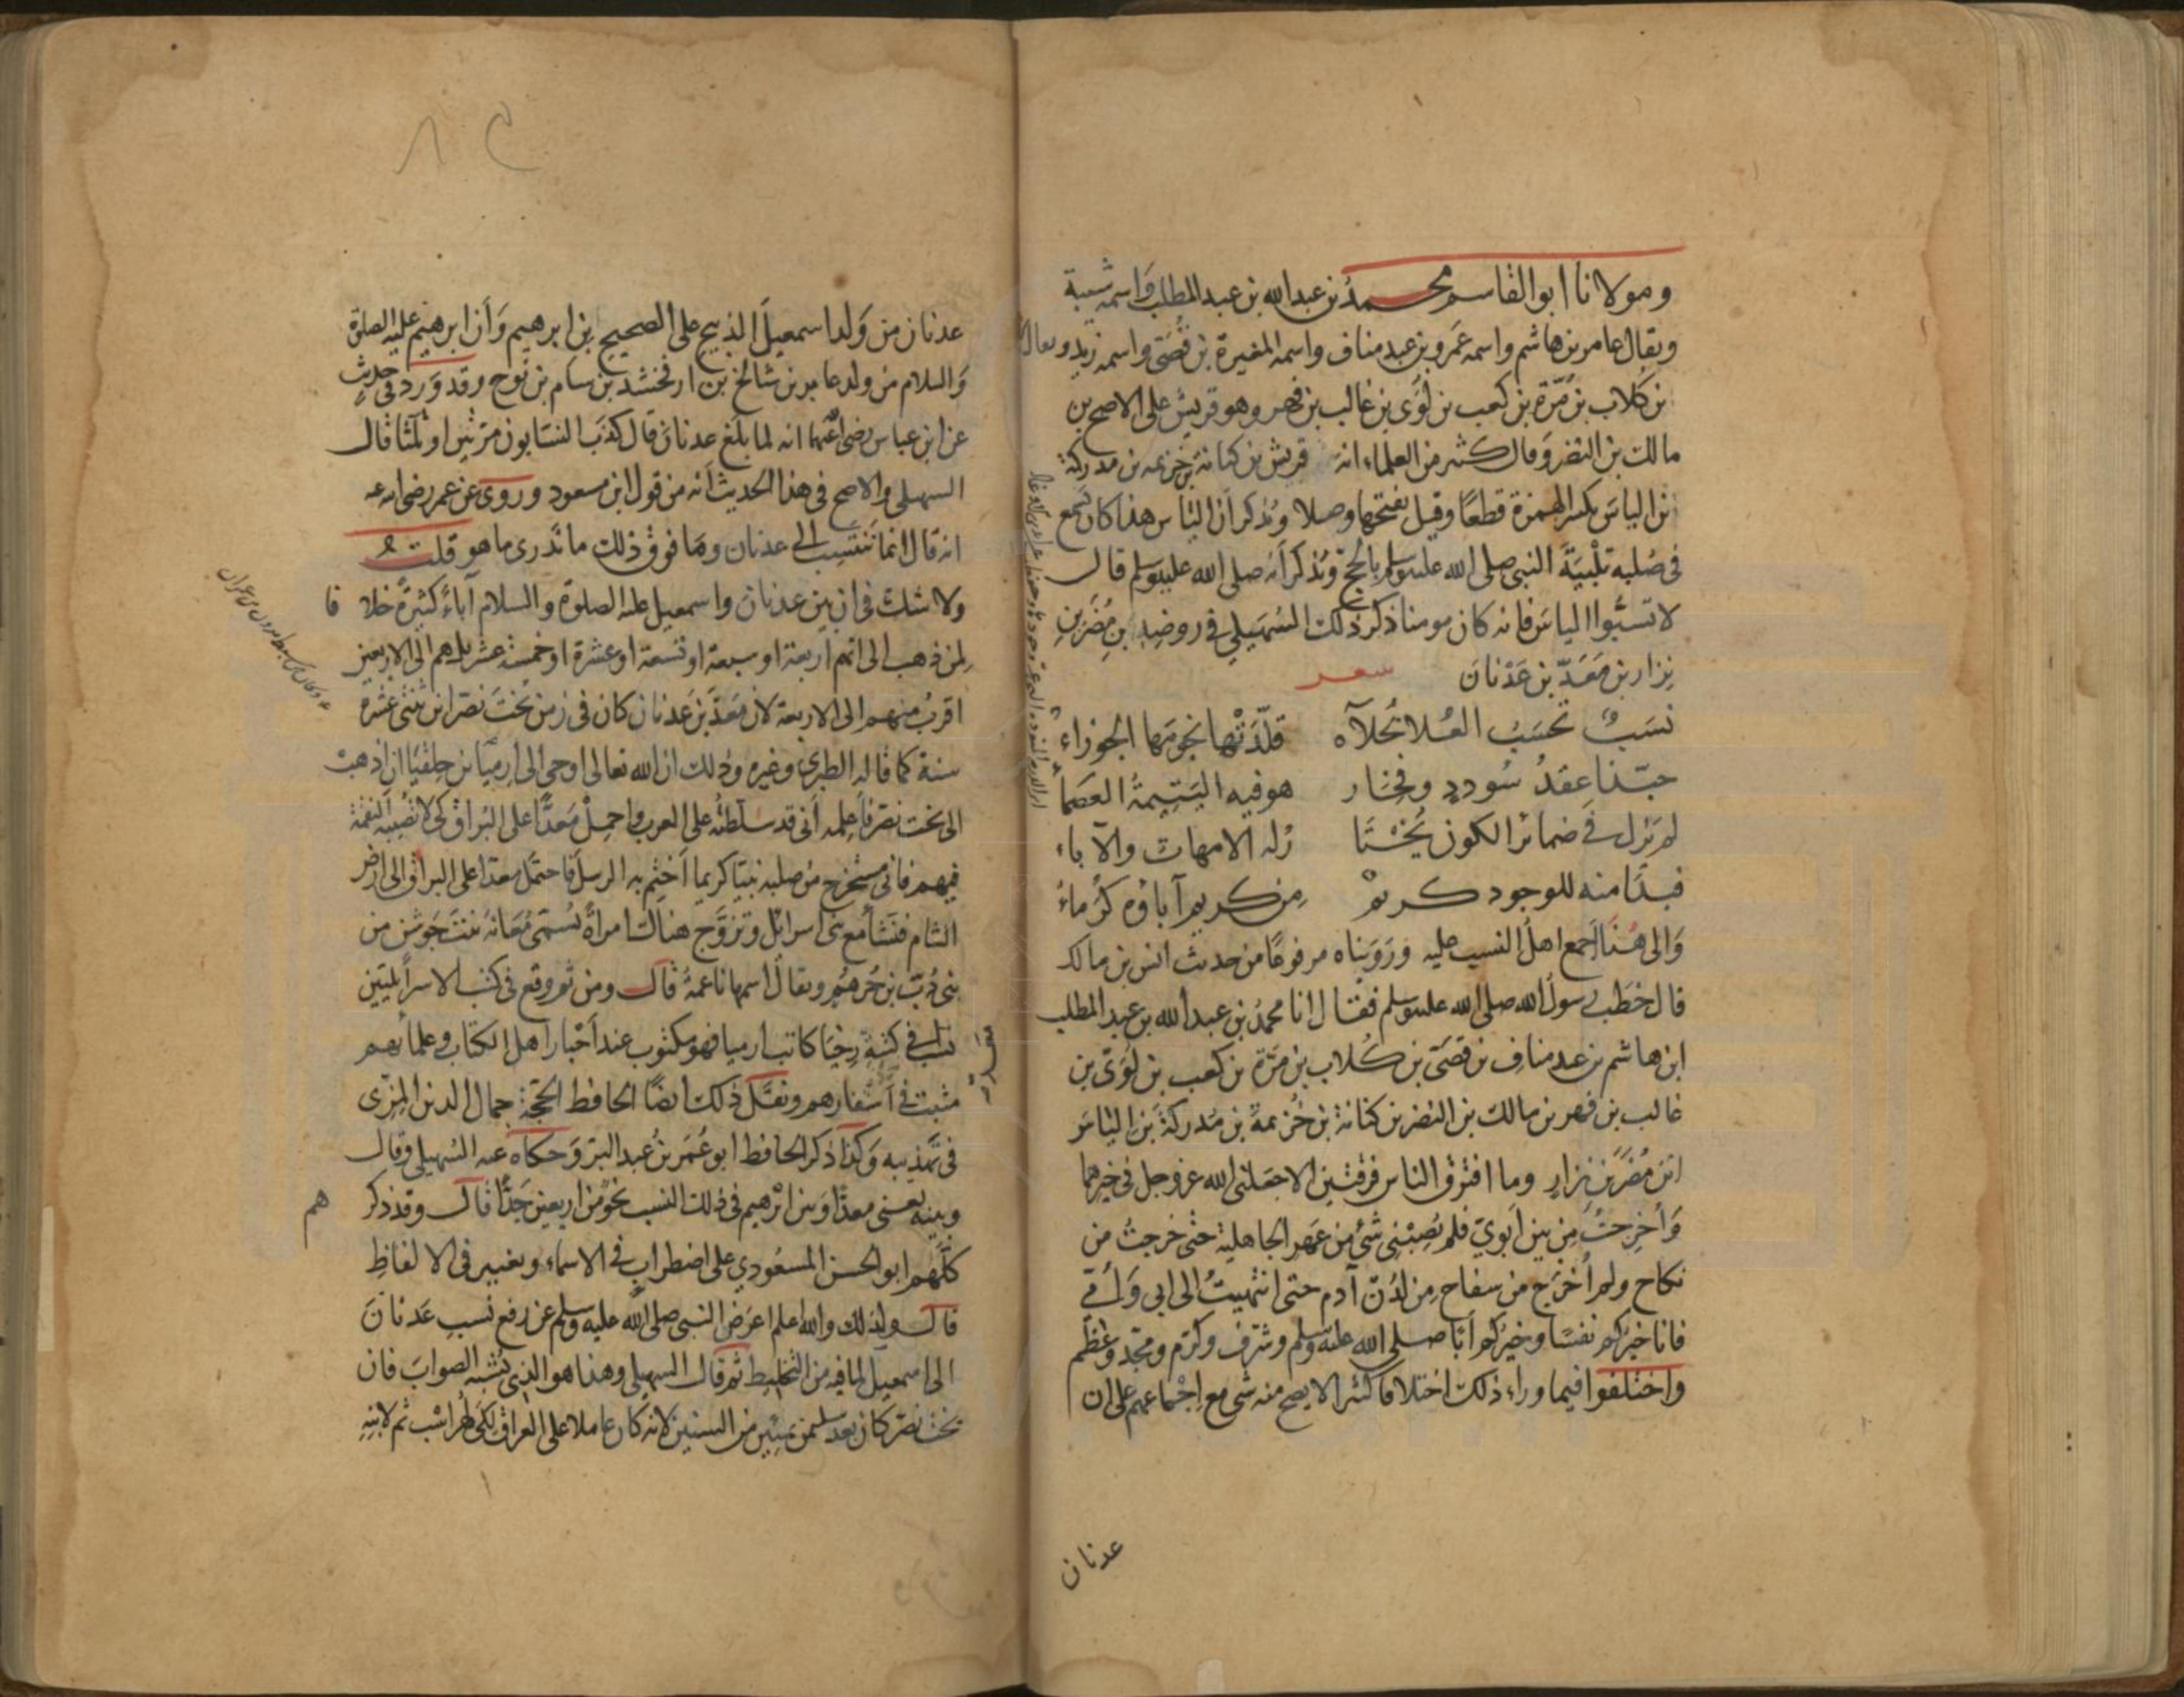 ومولانا ابو القاسم محمد بن عبدالله بن عبد المطلب واسمه شيبة
ويقال عامر بن هاشم واسمه عَمرو بن عبد مناف واسمه المغيرة بن قُصَيّ واسمه زيد ويقال
بن كلاب بن مُرّة بن كعب بن لُؤى بن غالب بن فهر وهو قريش على الاصح بن
مالك بن النضر وقال كثير من العلماء انه قريش بن كنانة بن خزيمه بن مدركة
بن الياسَ بكسر الهمزة قطعًا وقيل بفتحها وصلا ويُذكر أن الياس هذا كان يَسمع
فى صُلبه تلْبيَةَ النبى صلى الله عليه وسلم بالحج ويُذكر أنه صلى الله عليه وسلم قال
لا تسبُّوا الياسَ فانه كان مومنا ذكر ذلك السُهَيلي في روضه بن مُضَر بن
نِزار بن مَعَدّ بن عَدْنانَ
نسَبٌ تحسَبُ العُلا بحُلاه قلَّدَتْها نجومَها الجوزاءُ
حبّذا عِقدُ سُودد وفِخَار هو فيه اليَتِيمةُ العصماءُ
لم تزل في ضمائر الكون تُختا رُ له الامهات والآباء
فبدَا منه للوجود كريمٌ مِن كريم آباؤه كُرماءُ
وَالى هُنا اَجمع اهلُ النسب عليه ورَوَيناه مرفوعًا من حديث انس بن مالك
قال خطب رسولُ الله صلى الله عليه وسلم فقال انا محمدُ بن عبد الله بن عبد المطلب
ابن هاشم بن عبد مناف بن قصَى بن كُلاب بن مرّة بن كعب بن لُوَىّ بن
غالب بن فهر بن مالك بن النضر بن كنانة بن خُزيمة بن مُدركةَ بن الياسَ
ابن مُضَر بن نِزارٍ وما افترق الناس فرقتين الا جعلنى الله عز وجل فى خيرهما
وَأُخرِجتُ مِن بين اَبويّ فلم يُصِبْنى شئ من عَهرِ الجاهلية حتى خرجتُ من
نكاح ولم اُخرَج من سفاح مِن لَدُنْ آدم حتى انتهيتُ الى ابى وَاُمّي
فانا خيرُكم نفسًا وخيركم اَبًا صلى الله عليه وسلم وشرّف وكرّم ومجّد وعظّم
واختلفوا فيما وراء ذلك اختلافا كثيرا لا يصح منه شى مع اجماعهم على ان
عدنان
عدنان من وَلد اسمعيل الذبيح على الصحيح بن ابرهيم وَأن ابرهيم عليه الصلوة
وَالسلام من ولد عابر بن شالخ بن ارفخشد بن سام بن نوح وقد وَرد فى حديثٍ
عن ابن عباس رضى الله عنهما انه لما بلغ عدنان قال كذبَ النسّابون مرّتين او ثلثا قال
السهيلى والاصح فى هذا الحديث اَنه من قول ابن مسعود وروى عن عمر رضى الله عنه
انه قال انما نَنتَسِب الى عدنان ومَا فوق ذلك ما نَدرى ما هو قلتُ
ولا شك فى ان بين عدنان واسمعيل عليه الصلوة والسلام آباءً كثيرةً خلا فا
لِمن ذهب الى انهم اربعة او سبعة او تسعة او عشرة او خمسة عشر بل هم الى الاربعين
اقربُ منهم الى الاربعة لان مَعَدّ بن عَدنان كان فى زمن بُختَ نصَّر ابن ثنتى عشرة
سنة كما قاله الطبرى وغيره وذلك ان الله تعالى اوحى الى ارميَا بن حلقيَا ان اذهبْ
الى بخت نصّر فاَعلِمه اَنى قد سلّطتُه على العرب واحمِلْ مَعدًّا على البُراق كى لا تُصيبه النقمة
فيهم فانى مستخرج من صلبه نبيّا كريما اَختِم به الرسل فاحتمل معدّا على البراق الى ارض
الشام فنَشأ مع بنى اسرائل وتزوّج هناك امراةً تُسمّى مُعَانة بنت جَوشن من
بنى دُبّ بن جُرهُم ويقال اسمها ناعمة قال ومن ثم وقع فى كتب الاسرائيليّين
نسبه فى كتبة رِخيَا كاتب ارميا فهو مكتوب عند اَحبار اهل الكتاب وعلمائهم
مثبت في اَسفارهم ونقل ذلك ايضًا الحافظ الحجّة جمال الدين المِزّى
فى تهذيبه وَكذا ذكر الحافظ ابو عُمَر بنُ عبد البرّ وَحكاه عنه السُهيلى وقال
وبينه يعنى معدّا وَبين ابرهيم فى ذلك النسب نحوٌ من اربعين جَدًّا قال وقد ذكر هم
كلَّهم ابو الحسن المسعُودي على اضطراب فى الاسماء وتغيير فى الالفاظِ
قال ولذلك والله اعلم اعرَض النبى صلى الله عليه وسلم عن رفع نسبِ عَدنانَ
الى اسمعيل لما فيه من التخليط ثم قال السهيلى وهذا هو الذى يُشبه الصوابَ فان
بخت نصّر كان بعد سليمن بِسنين من السنين لانه كان عاملا على العراق لكَى لهراسْب ثم لابنِهِ